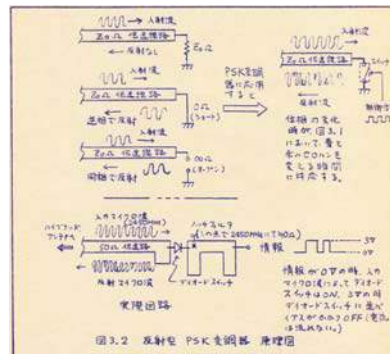 入射波
Z₀Ω 伝送線路
反射なし
Z₀Ω
入射波
Z₀Ω 伝送線路
逆相で反射
0Ω
(ショート)
入射波
Z₀Ω 伝送線路
同相で反射
∞Ω
(オープン)
PSK変調
器に応用
すると
入射波
Z₀Ω 伝送線路
スイッチ
反射波
位相の変化
時が、図3.1
において、青と
赤のペンを
変える時間
に対応する。
入力マイクロ波
(2450MHz)
ハイブリッド
アンテナへ
50Ω 伝送線路
反射マイクロ波
ダイオードスイッチ
情報
3V
0V
実際回路
情報が0Vの時、入力
マイクロ波によってダイオード
スイッチはON、3Vの時
ダイオードスイッチに逆バ
イアスがかかりOFF(電流
は流れない。)
図3.2 反射型 PSK変調器 原理図